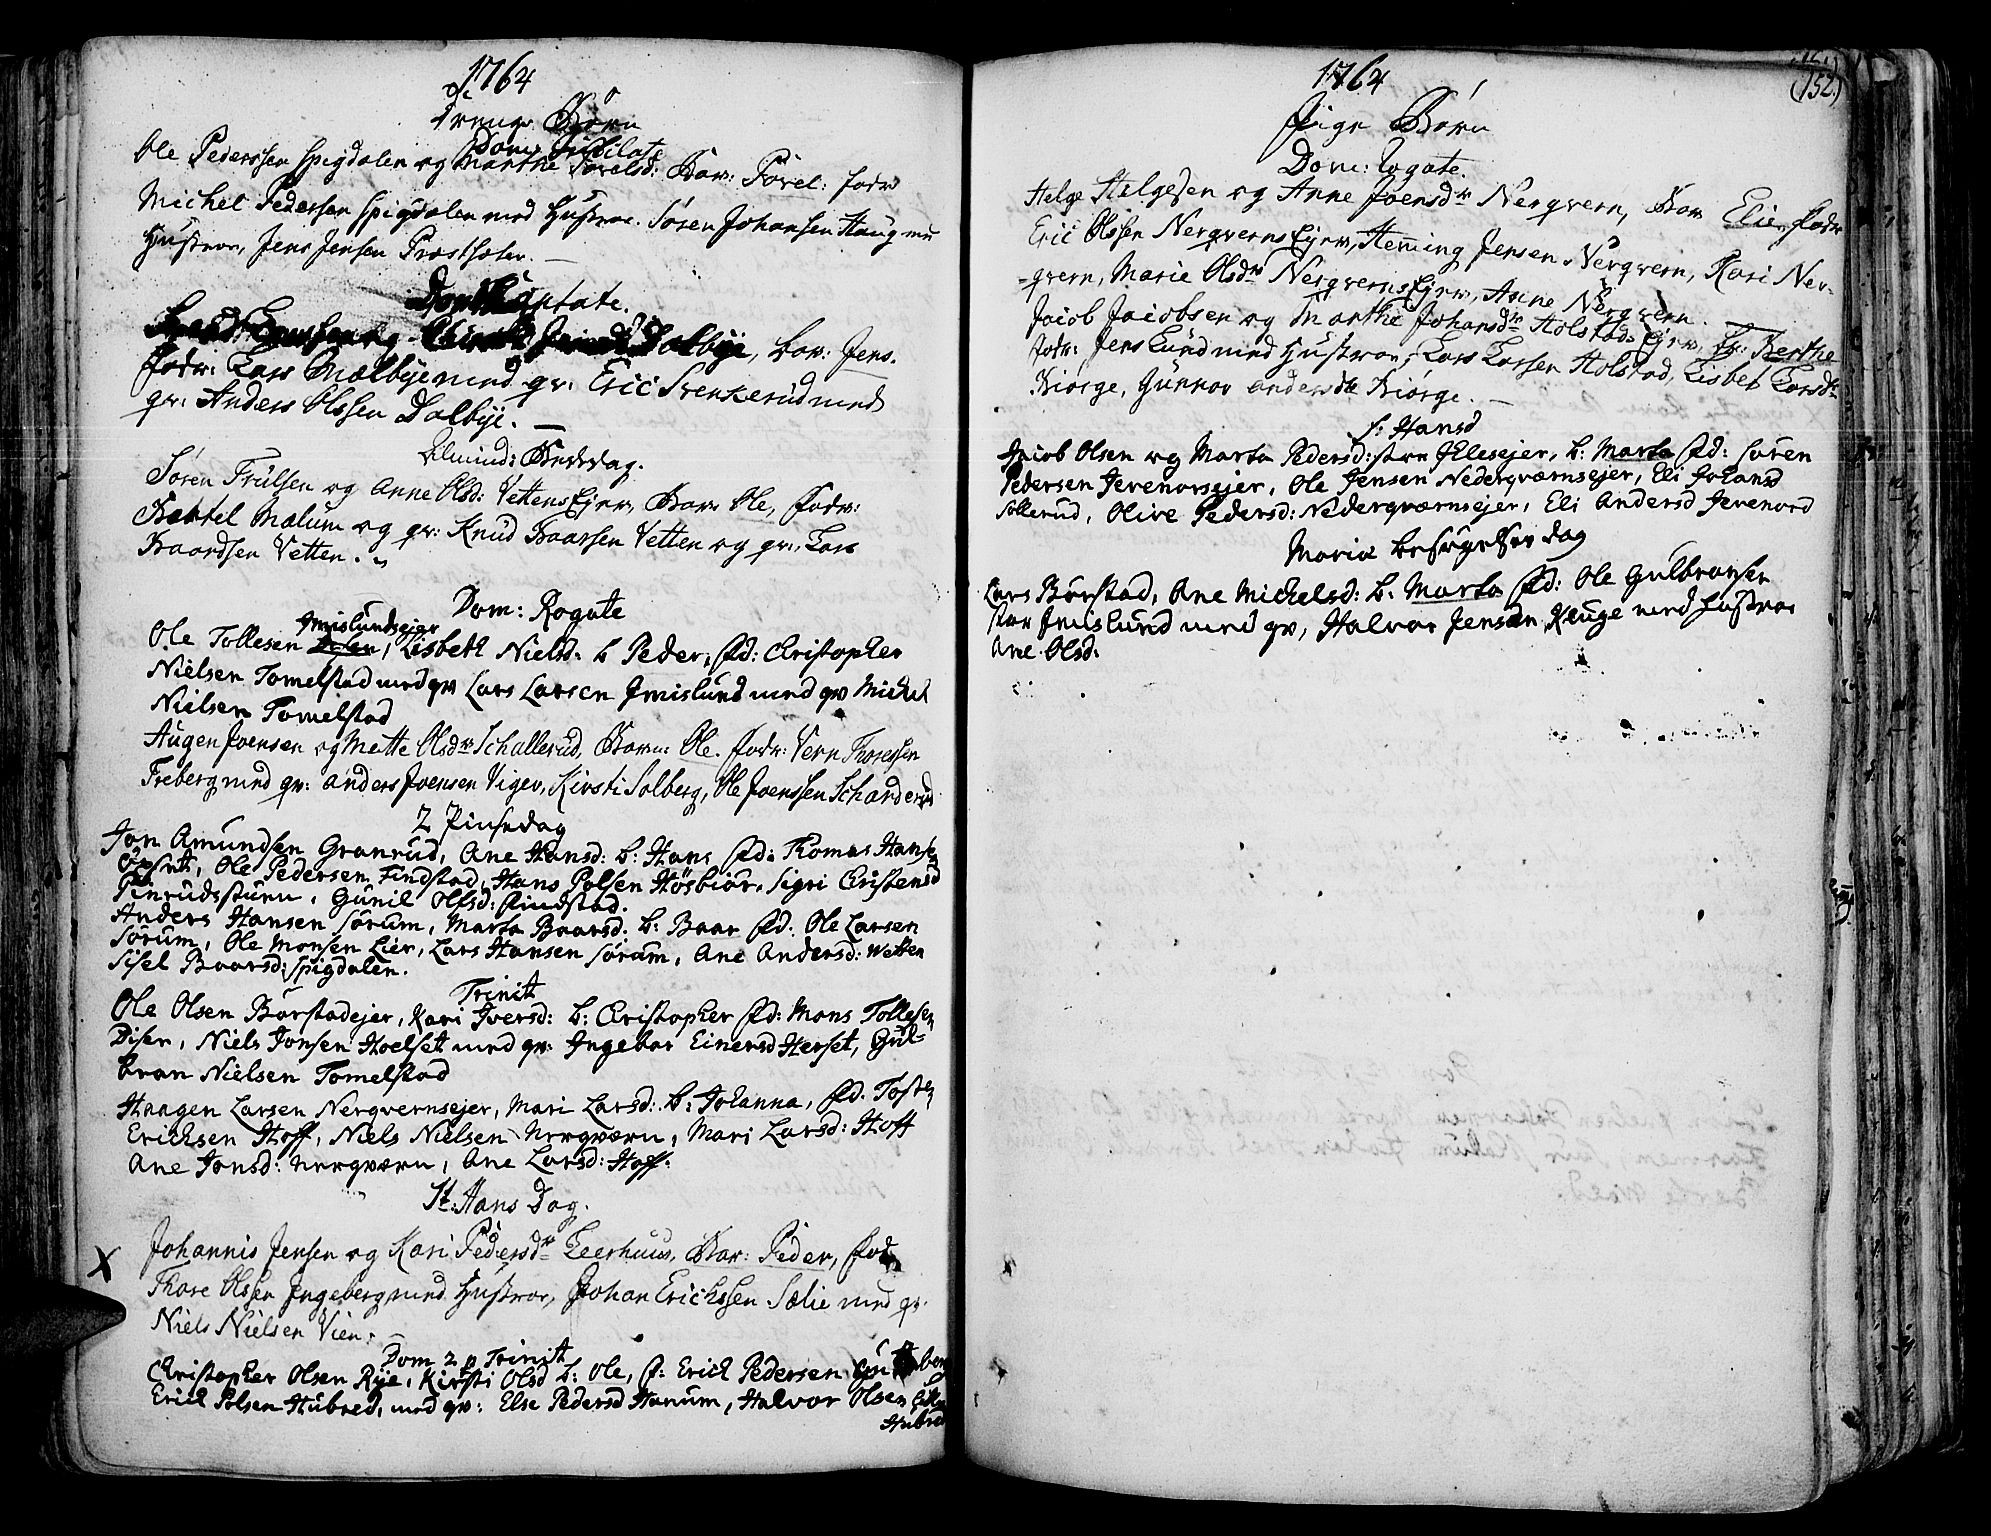 1764
Drenge Børn
Dom: Jubilate
Ole Pederssen Spigdalen og Marthe Povelsd: Bar: Povel: fadr
Michel Pederssen Spigdalen med Hustroe. Søren Johansen Haug me
Hustroe, Jens Jensen Prestsæter. —
Dom Cantate.
og Dalbye, bar: Jens.
fadr: Lars Mælbye med qv: Eric Svenkerud med
qv: Anders Olssen Dalbye. —
Almind: Bededag.
Sören Trulsen og Anne Olsd: Vettens Ejer, Bar: Ole, fadr:
Bertel Mælum og qv: Knud Baarsen Vetten og qv: Lars
Baardsen Vetten.
Dom: Rogate
Imislundsejer
Ole Tollesen, Lisbeth Nielsd: b Peder, fad: Christopher
Nielsen Tomelstad med qv Lars Larsen Imislund med qv Michel
Nielsen Tomelstad
Augen Joensen og Mette Olsdr Schallerud, Barn: Ole. fadr: Vern Thoressen
Freberg med qv: Anders Joensen Viger, Kirsti Solberg, Ole Joenssen Schanderud
2 Pinsedag
Jon Amundsen Granrud, Ane Hansd: b: Hans fad: Thomas Hansen
Opset, Ole Pedersen Findstad, Hans Polsen Høsbiør, Sigri Cristensd
Finrudsstuen, Gunil Olfsd: Findstad.
Anders Hansen Sørum, Marta Baarsd: b: Baar fad: Ole Larsen
Sørum, Ole Monsen Lier, Lars Hansen Sørum, Ane Andersd: Wetten
Sisel Baarsd: Spigdalen.
Trinit
Ole Olsen Børstadejer, Kari Iversd: b: Christopher fad: Mons Tollesen
Disen, Niels Jonsen Hoelset med qv: Ingebor Einersd Herset, Gul-
bran Nielsen Tomelstad
Haagen Larsen Nerqvernsejer, Mari Larsd: b: Johanna, fad. Tosten
Erichsen Hoff, Niels Nielsen Nerqværn, Mari Larsd: Hoff
Ane Jonsd: Nerqværn, Ane Larsd: Hoff.
St: Hans Dag.
X Johannis Jensen og Kari Pedersdr Leerhuus, Bar: Peder, fadr
Thore Olssen Ingeberg med Hustroe, Johan Erichssen Sælie med qv.
Niels Nielsen Vien. —
Dom 2 p Trinit
Christopher Olsen Rye, Kirsti Olsd b: Ole, f: Erick Pedersen
Erick Polsen Hubred, med qv: Else Pedersd Hanum, Halvor Olsen
Hubred
1764
(152.)
Pige Børn
Dom: Rogate.
Helge Helgesen og Anne Joensdr Nerqvern, Bar Elie, fadr
Eric Olssen Nerqverns Ejer, Heming Jensen Nerqvern, Kari Ner-
-qvern, Marie Olsdr Nerqverns Ejer, Anne Nerqvern.
Jacob Jacobsen og Marthe Johansdr Holstads Ejer, Br: Berthe
fadr: Jens Lund med Hustroe, Lars Larsen Holstad, Lisbet Larsdr
Kiørge, Gunnor Andersdr Kiørge. —
S: Hansd
Jacob Olsen og Marta Pedersd: store Ilesejer, b: Marta fad: Soren
Pedersen Jerenorsejer, Ole Jensen Nederqværnsejer, Eli Johansd
Sollerud, Olive Pedersd: Nederqværnsejer, Eli Andersd Jerenord
Mariæ besøgelses dag
Lars Børstad, Ane Michelsd: b: Marta fad: Ole Gulbransen
store Imislund med qv, Halvor Jensen Kluge med hustroe
Ane Olsd: